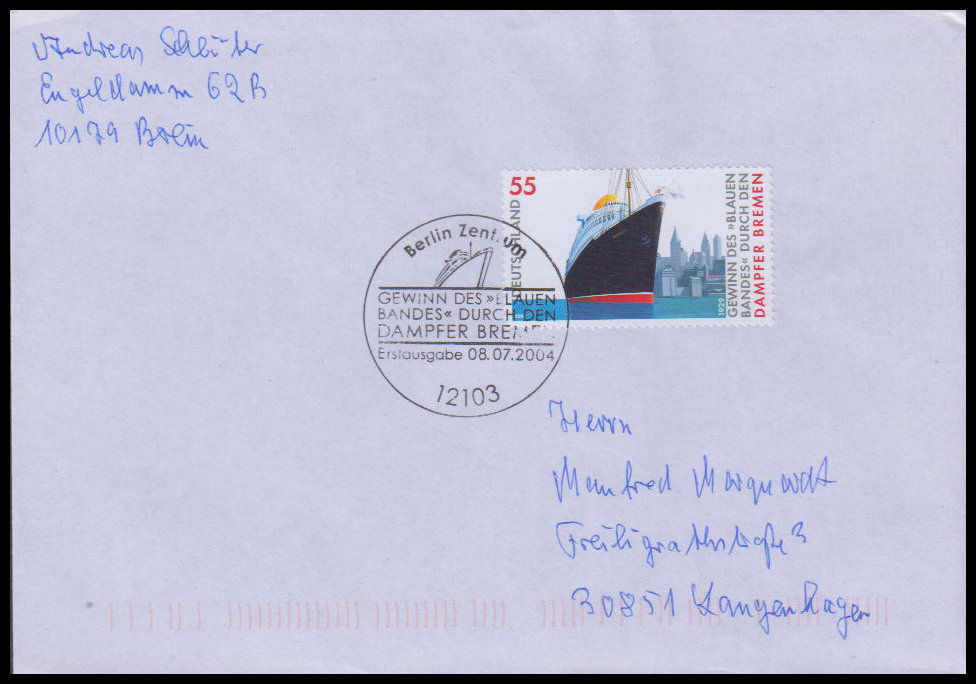 Andreas Schlüter
Engeldamm 62B
10179 Berlin
55
DEUTSCHLAND
1929
GEWINN DES »BLAUEN
BANDES« DURCH DEN
DAMPFER BREMEN
Berlin Zentrum
GEWINN DES »BLAUEN
BANDES« DURCH DEN
DAMPFER BREMEN
Erstausgabe 08.07.2004
12103
Herrn
Manfred Marquardt
Freiligrathstraße 3
30851 Langenhagen